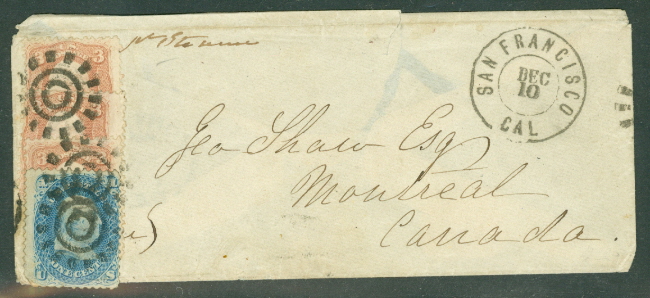 pr Steamer
SAN FRANCISCO
DEC
10
CAL
Geo Shaw Esq
Montreal
Canada.